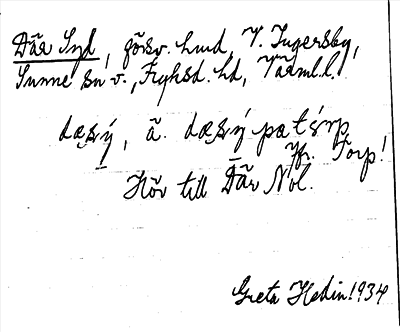 Där Syd, försv. hmd, V. Ingersby,
Sunne sn v., Fryksd. hd, Värml.l.
dæṣý, ä. dæṣý pa tśrp
Jfr. Torp!
Hör till Där Nol.
Greta Hedin. 1934